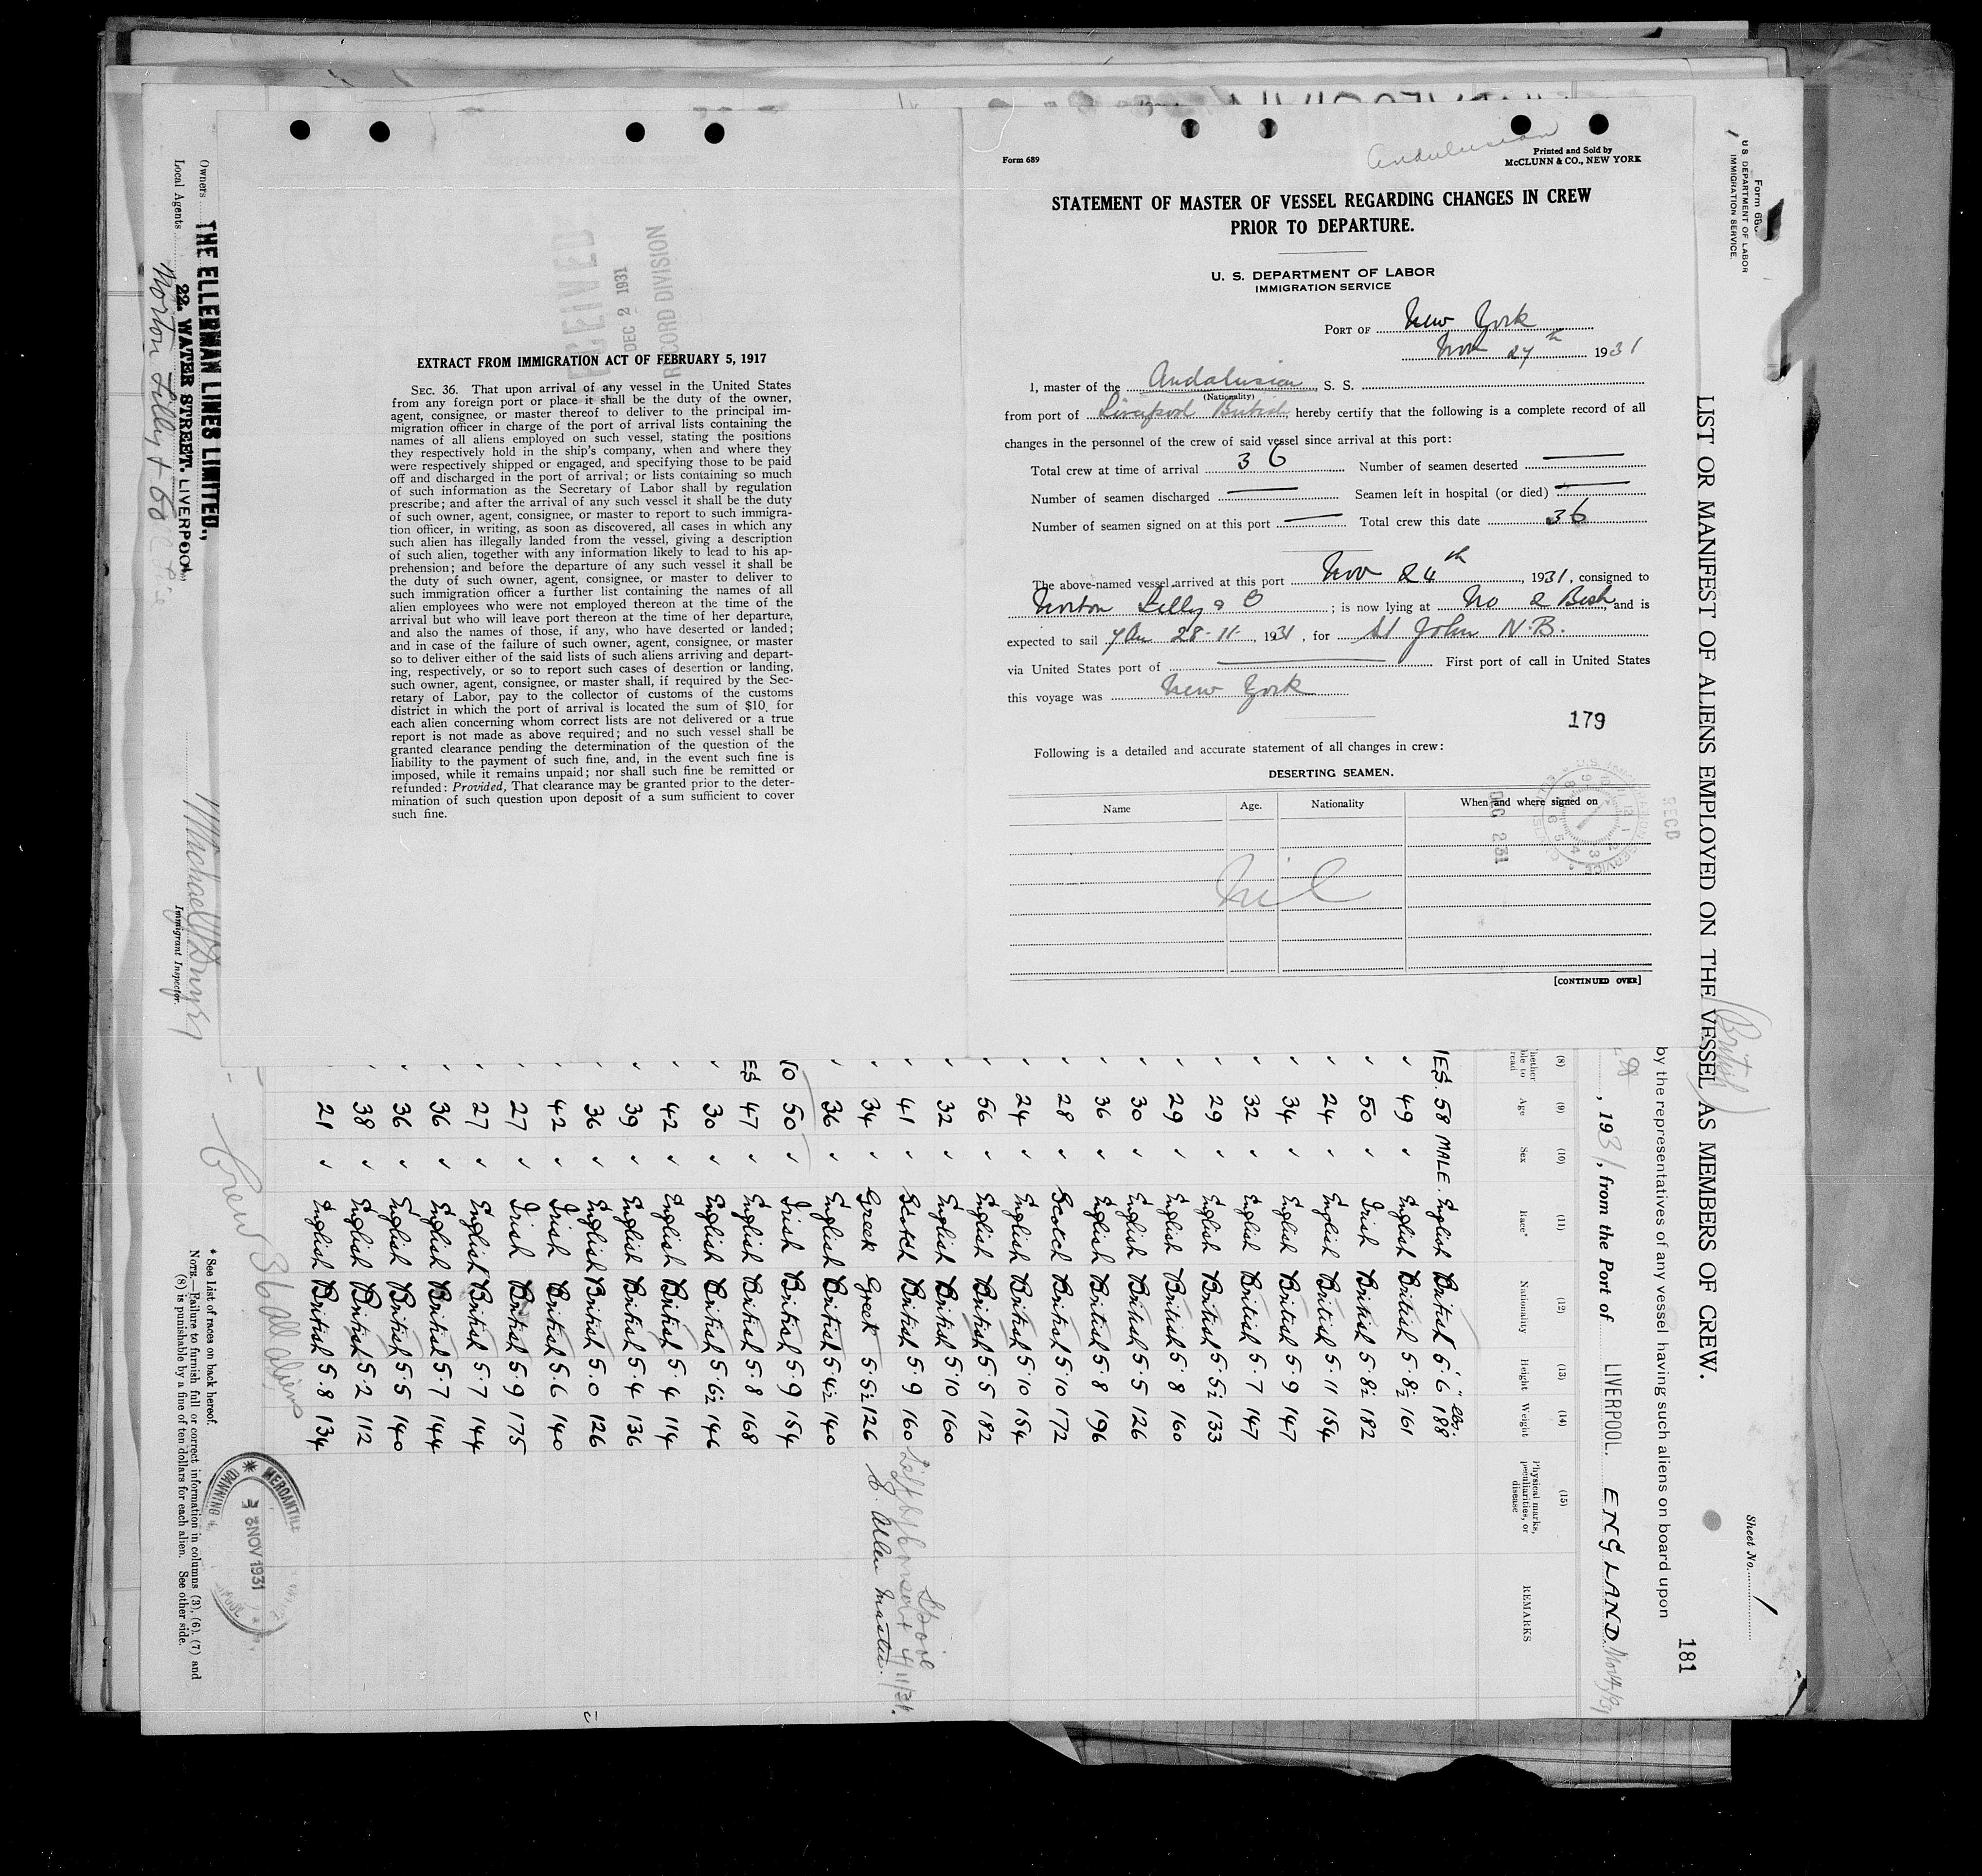 Andalusian
Form 689
Printed and Sold by
McCLUNN & CO., NEW YORK
STATEMENT OF MASTER OF VESSEL REGARDING CHANGES IN CREW
PRIOR TO DEPARTURE.
U. S. DEPARTMENT OF LABOR
IMMIGRATION SERVICE
PORT OF New York
Nov 27th 1931
I, master of the Andalusian, S. S.
(Nationality)
from port of Liverpool British, hereby certify that the following is a complete record of all
changes in the personnel of the crew of said vessel since arrival at this port:
Total crew at time of arrival 36 Number of seamen deserted —
Number of seamen discharged — Seamen left in hospital (or died) —
Number of seamen signed on at this port — Total crew this date 36
The above-named vessel arrived at this port Nov 24th, 1931, consigned to
Norton Lilly & ; is now lying at No 2 , and is
expected to sail 28-11-1931, for St John N.B.
via United States port of — First port of call in United States
this voyage was New York
179
Following is a detailed and accurate statement of all changes in crew:
DESERTING SEAMEN.
Name Age. Nationality When and where signed on
Nil
DEC 2 31
RECD
[CONTINUED OVER]
RECEIVED
DEC 2 1931
RECORD DIVISION
EXTRACT FROM IMMIGRATION ACT OF FEBRUARY 5, 1917
SEC. 36. That upon arrival of any vessel in the United States
from any foreign port or place it shall be the duty of the owner,
agent, consignee, or master thereof to deliver to the principal im-
migration officer in charge of the port of arrival lists containing the
names of all aliens employed on such vessel, stating the positions
they respectively hold in the ship's company, when and where they
were respectively shipped or engaged, and specifying those to be paid
off and discharged in the port of arrival; or lists containing so much
of such information as the Secretary of Labor shall by regulation
prescribe; and after the arrival of any such vessel it shall be the duty
of such owner, agent, consignee, or master to report to such immigra-
tion officer, in writing, as soon as discovered, all cases in which any
such alien has illegally landed from the vessel, giving a description
of such alien, together with any information likely to lead to his ap-
prehension; and before the departure of any such vessel it shall be
the duty of such owner, agent, consignee, or master to deliver to
such immigration officer a further list containing the names of all
alien employees who were not employed thereon at the time of the
arrival but who will leave port thereon at the time of her departure,
and also the names of those, if any, who have deserted or landed;
and in case of the failure of such owner, agent, consignee, or master
so to deliver either of the said lists of such aliens arriving and depart-
ing, respectively, or so to report such cases of desertion or landing,
such owner, agent, consignee, or master shall, if required by the Sec-
retary of Labor, pay to the collector of customs of the customs
district in which the port of arrival is located the sum of $10. for
each alien concerning whom correct lists are not delivered or a true
report is not made as above required; and no such vessel shall be
granted clearance pending the determination of the question of the
liability to the payment of such fine, and, in the event such fine is
imposed, while it remains unpaid; nor shall such fine be remitted or
refunded: Provided, That clearance may be granted prior to the deter-
mination of such question upon deposit of a sum sufficient to cover
such fine.
U S DEPARTMENT OF LABOR
IMMIGRATION SERVICE.
Sheet No. 1
LIST OR MANIFEST OF ALIENS EMPLOYED ON THE VESSEL AS MEMBERS OF CREW.
(British)
181
by the representatives of any vessel having such aliens on board upon
, 1931, from the Port of LIVERPOOL. ENGLAND.
(8) (9) (10) (11) (12) (13) (14) (15)
Age Sex Race* Nationality Height Weight Physical marks, peculiarities, or disease REMARKS
YES. 58 MALE. English British 5' 6" 188 lbs.
" 49 " English British 5.8½ 161
" 50 " Irish British 5.8½ 182
" 24 " English British 5.11 154
" 34 " English British 5.9 147
" 32 " English British 5.7 147
" 29 " English British 5.5½ 133
" 29 " English British 5.8 160
" 30 " English British 5.5 126
" 36 " English British 5.8 196
" 28 " Scotch British 5.10 172
" 24 " English British 5.10 154
" 56 " English British 5.5 182
" 32 " English British 5.10 160
" 41 " Scotch British 5.9 160
" 34 " Greek Greek 5.5½ 126
" 36 " English British 5.4½ 140
NO 50 " Irish British 5.9 154
YES 47 " English British 5.8 168
" 30 " English British 5.6½ 146
" 42 " English British 5.4 114
" 39 " English British 5.4 136
" 36 " English British 5.0 126
" 42 " Irish British 5.6 140
" 27 " Irish British 5.9 175
" 27 " English British 5.7 144
" 36 " English British 5.7 144
" 36 " English British 5.5 140
" 38 " English British 5.2 112
" 21 " English British 5.8 134
Allen Master.
Crew 36 all aliens
* See List of races on back hereof.
NOTE.—Failure to furnish full or correct information in columns (3), (6), (7) and
(8) is punishable by a fine of ten dollars for each alien. See other side.
MERCANTILE
NOV 1931
Owners THE ELLERMAN LINES LIMITED,
22, WATER STREET, LIVERPOOL
Local Agents Norton Lilly & Co
Immigrant Inspector.